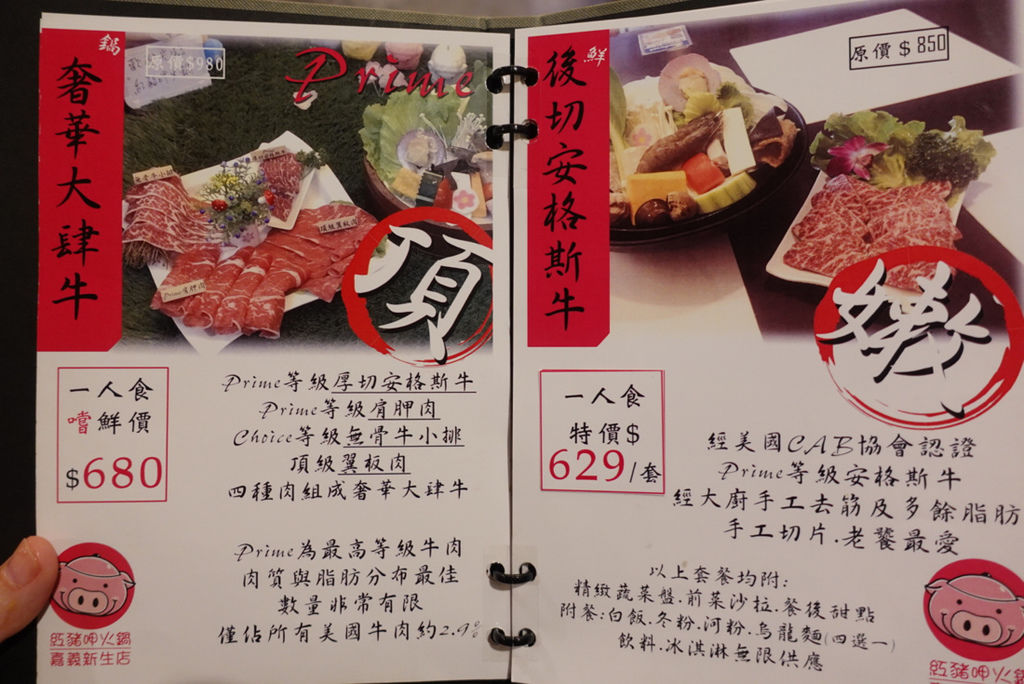 鍋
奢華大肆牛
原價$980
Prime
頂
一人食
嚐鮮價
$680
Prime等級厚切安格斯牛
Prime等級肩胛肉
Choice等級無骨牛小排
頂級翼板肉
四種肉組成奢華大肆牛
Prime為最高等級牛肉
肉質與脂肪分布最佳
數量非常有限
僅佔所有美國牛肉約2.9%
豬呷火鍋
嘉義新生店
鮮
後切安格斯牛
原價$850
嫩
一人食
特價$
629/套
經美國CAB協會認證
Prime等級安格斯牛
經大廚手工去筋及多餘脂肪
手工切片.老饕最愛
以上套餐均附:
精緻蔬菜盤.前菜沙拉.餐後甜點
附餐:白飯.冬粉.河粉.烏龍麵(四選一)
飲料.冰淇淋無限供應
豬呷火鍋